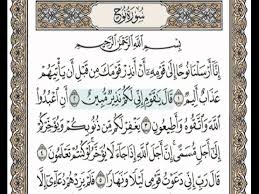 سُورَةُ نُوحٍ
بِسْمِ اللَّهِ الرَّحْمَٰنِ الرَّحِيمِ
إِنَّا أَرْسَلْنَا نُوحًا إِلَىٰ قَوْمِهِۦٓ أَنْ أَنذِرْ قَوْمَكَ مِن قَبْلِ أَن يَأْتِيَهُمْ
عَذَابٌ أَلِيمٌ ١ قَالَ يَٰقَوْمِ إِنِّي لَكُمْ نَذِيرٌ مُّبِينٌ ٢ أَنِ ٱعْبُدُوا۟
ٱللَّهَ وَٱتَّقُوهُ وَأَطِيعُونِ ٣ يَغْفِرْ لَكُم مِّن ذُنُوبِكُمْ وَيُؤَخِّرْكُمْ
إِلَىٰٓ أَجَلٍ مُّسَمًّى إِنَّ أَجَلَ ٱللَّهِ إِذَا جَآءَ لَا يُؤَخَّرُ لَوْ كُنتُمْ تَعْلَمُونَ ٤
قَالَ رَبِّ إِنِّي دَعَوْتُ قَوْمِي لَيْلًا وَنَهَارًا ٥ فَلَمْ يَزِدْهُمْ دُعَآءِيٓ إِلَّا